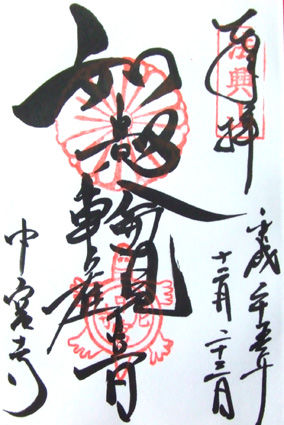 奉拝
平成二十五年
十二月二十三日
如意輪観音
中宮寺